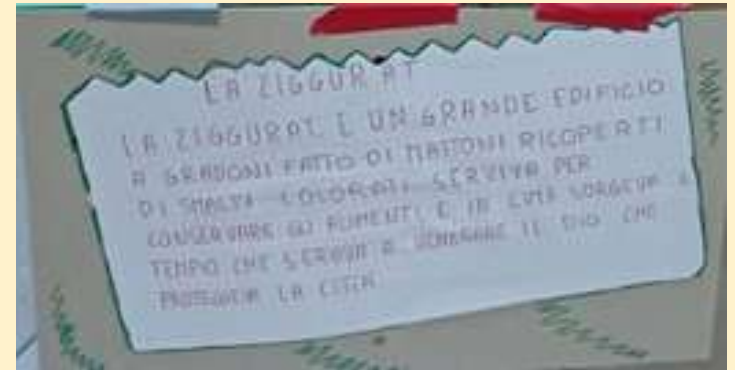 LA ZIGGURAT
LA ZIGGURAT È UN GRANDE EDIFICIO
A GRADONI FATTO DI MATTONI RICOPERTI
DI SMALTI COLORATI. SERVIVA PER
CONSERVARE GLI ALIMENTI E IN CIMA SORGEVA IL
TEMPIO CHE SERVIVA A VENERARE IL DIO CHE
PROTEGGEVA LA CITTÀ